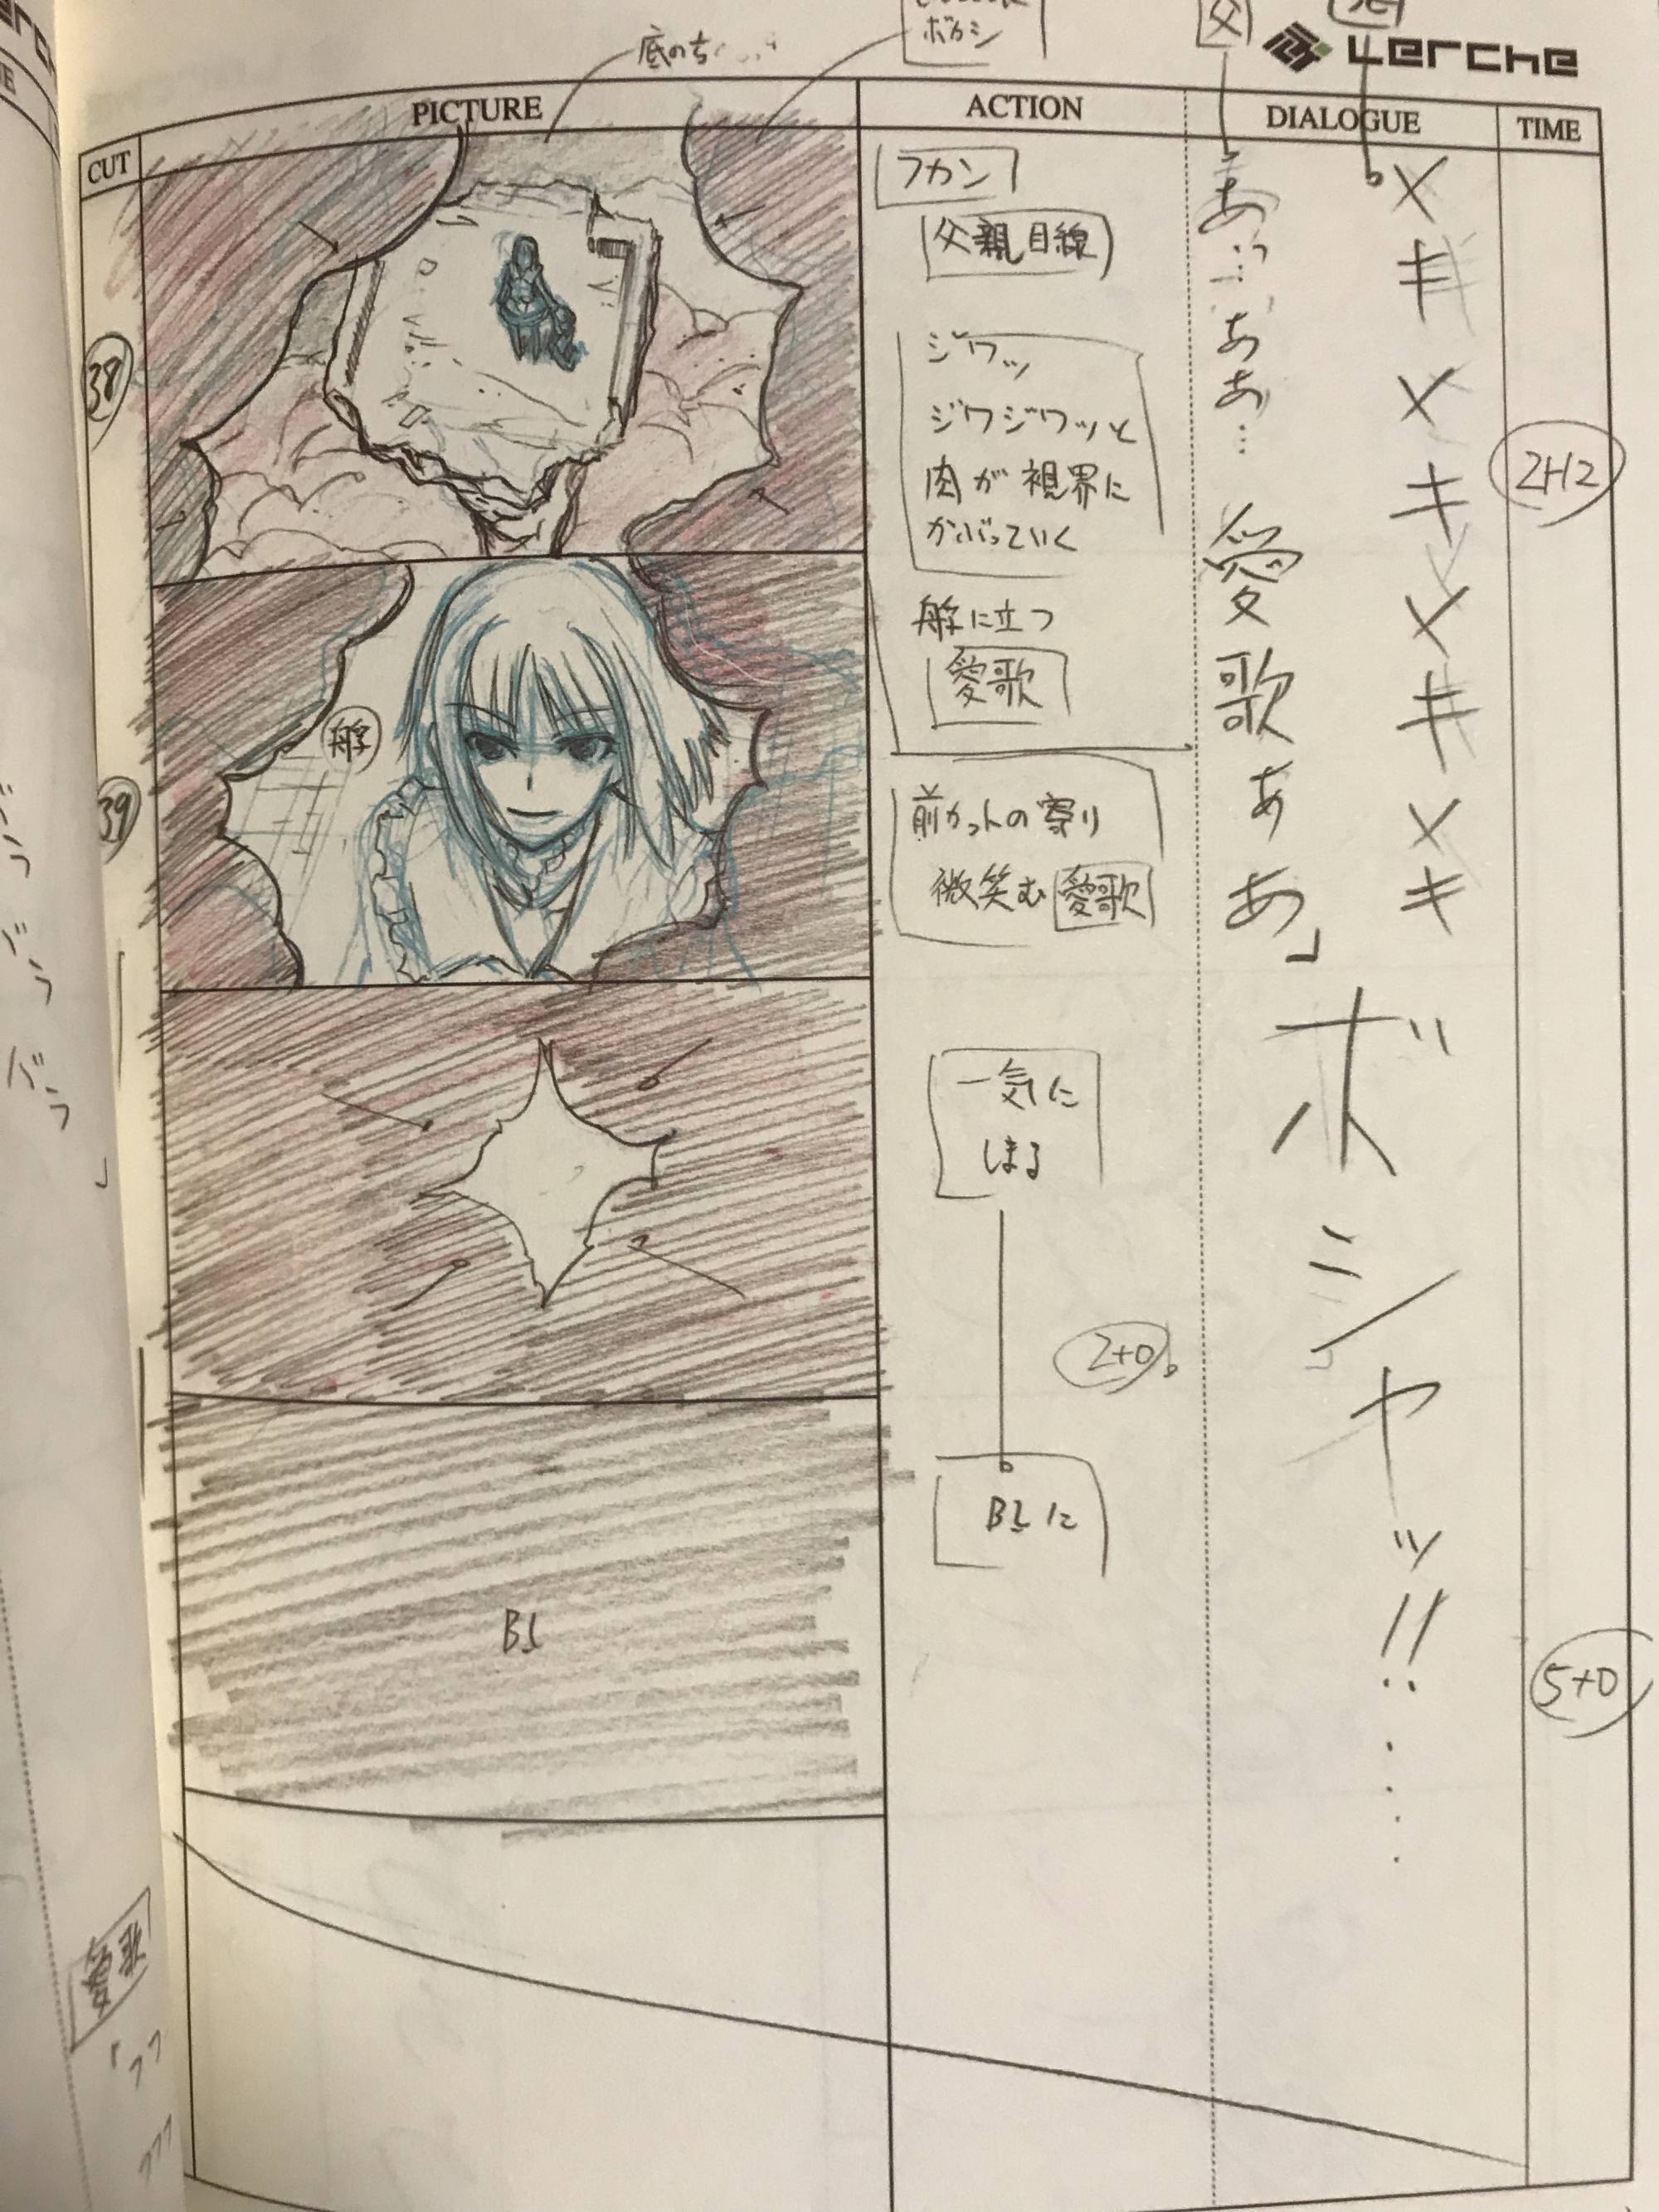 Lerche
CUT
PICTURE
ACTION
DIALOGUE
TIME
ボカシ
父
38
フカン
父親目線
ジワッ
ジワジワッと
肉が視界に
かぶっていく
艀に立つ
愛歌
2+12
39
艀
前カットの寄り
微笑む愛歌
一気に
しまる
2+0
BLに
BL
5+0
あっ……
ああ…
愛歌ああ」
メキメキメキメキ
ボシャッ!!……
愛歌